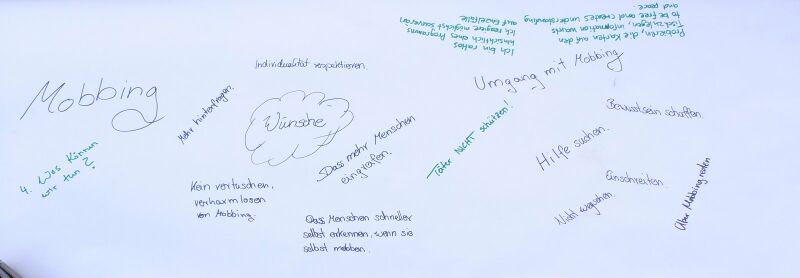 Mobbing
4. Was können
wir tun?
Mehr hinterfragen.
Individualität respektieren.
Wünsche
Dass mehr Menschen
eingreifen.
Kein vertuschen,
verharmlosen
von Mobbing.
Dass Menschen schneller
selbst erkennen, wenn sie
selbst mobben.
Ich bin ratlos
hinsichtlich eines Programms
Ich reagiere möglichst souverän
auf Einzelfälle
Probieren, die Karten auf den
Tisch zu legen, information wants
to be free and creates understanding
and peace.
Umgang mit Mobbing
Täter NICHT schützen!
Bewusstsein schaffen.
Hilfe suchen.
Einschreiten.
Nicht wegsehen.
Über Mobbing reden